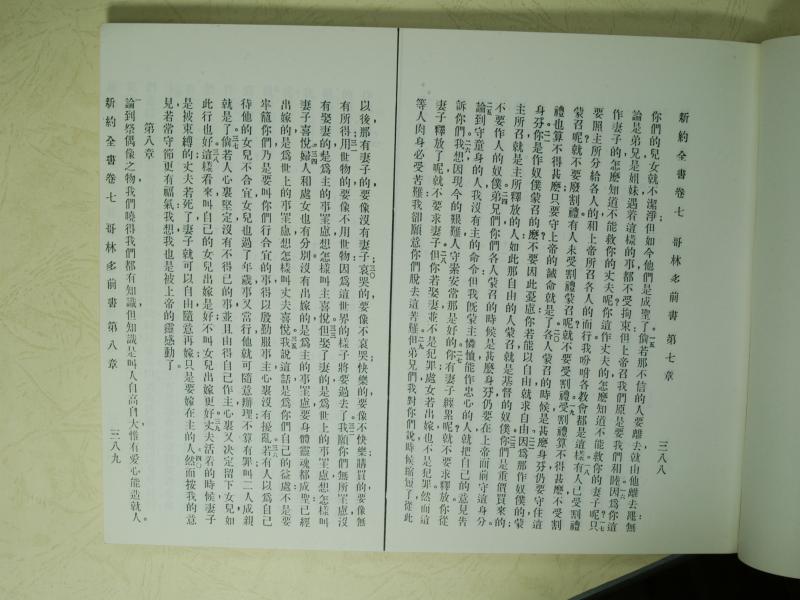 新約全書卷七 哥林多前書 第七章 三八八
你們的兒女就不潔淨但如今他們是成聖了倘若那不信的人要離去就由他離去罷無
論是弟兄是姐妹遇着這樣的事都不受拘束但上帝召我們原是要我們和睦因爲你這
作妻子的怎麽知道不能救你的丈夫呢你這作丈夫的怎麽知道不能救你的妻子呢只
要照主所分給各人的和上帝所召各人的而行我吩咐各敎會都是這樣有人已受割禮
蒙召呢就不要廢割禮有人未受割禮蒙召呢就不要受割禮受割禮算不得甚麽不受割
禮也算不得甚麽只要守上帝的誡命就是了各人蒙召的時候是甚麽身分仍要守住這
身分你是作奴僕蒙召的麽不要因此憂慮你若能以自由就求自由因爲那作奴僕的蒙
主所召就是主所釋放的人如此那自由的人蒙召就是基督的奴僕你們是重價買來的
不要作人的奴僕弟兄們你們各人蒙召的時候是甚麽身分仍要在上帝面前守這身分
論到守童身的人我沒有主的命令但我旣蒙主憐恤能作忠心的人就把自己的意見告
訴你們我想因現今的艱難人守素安常纔是好的你有妻子纏累呢就不要求釋放你從
妻子釋放了呢就不要求妻子但你若娶妻並不是犯罪處女若出嫁也不是犯罪然而這
等人肉身必受苦難我卻願意你們脫去這苦難但弟兄們我對你們說時候縮短了從此
以後那有妻子的要像沒有妻子哀哭的要像不哀哭快樂的要像不快樂購買的要像無
有所得用世物的要像不用世物因爲這世界的樣子將要過去了我願你們無所罣慮沒
有娶妻的是爲主的事罣慮想怎樣叫主喜悅但娶了妻的是爲世上的事罣慮想怎樣叫
妻子喜悅婦人和處女也有分別沒有出嫁的是爲主的事罣慮要身體靈魂都成聖已經
出嫁的是爲世上的事罣慮想怎樣叫丈夫喜悅我說這話是爲你們自己的益處不是要
牢籠你們乃是要叫你們行合宜的事得以殷勤服事主心裏沒有擾亂若有人以爲自己
待他的女兒不合宜女兒也過了年歲事又當行他就可隨意辦理不算有罪叫二人成親
就是了倘若人心裏堅定沒有不得已的事並且由得自己作主心裏又決定留下女兒如
此行也好這樣看來叫自己的女兒出嫁是好不叫女兒出嫁更好丈夫活着的時候妻子
是被束縛的丈夫若死了妻子就可以自由隨意再嫁只是要嫁在主的人然而按我的意
見若常守節更有福氣我想我也是被上帝的靈感動了
第八章
論到祭偶像之物我們曉得我們都有知識但知識是叫人自高自大惟有愛心能造就人
新約全書卷七 哥林多前書 第八章 三八九